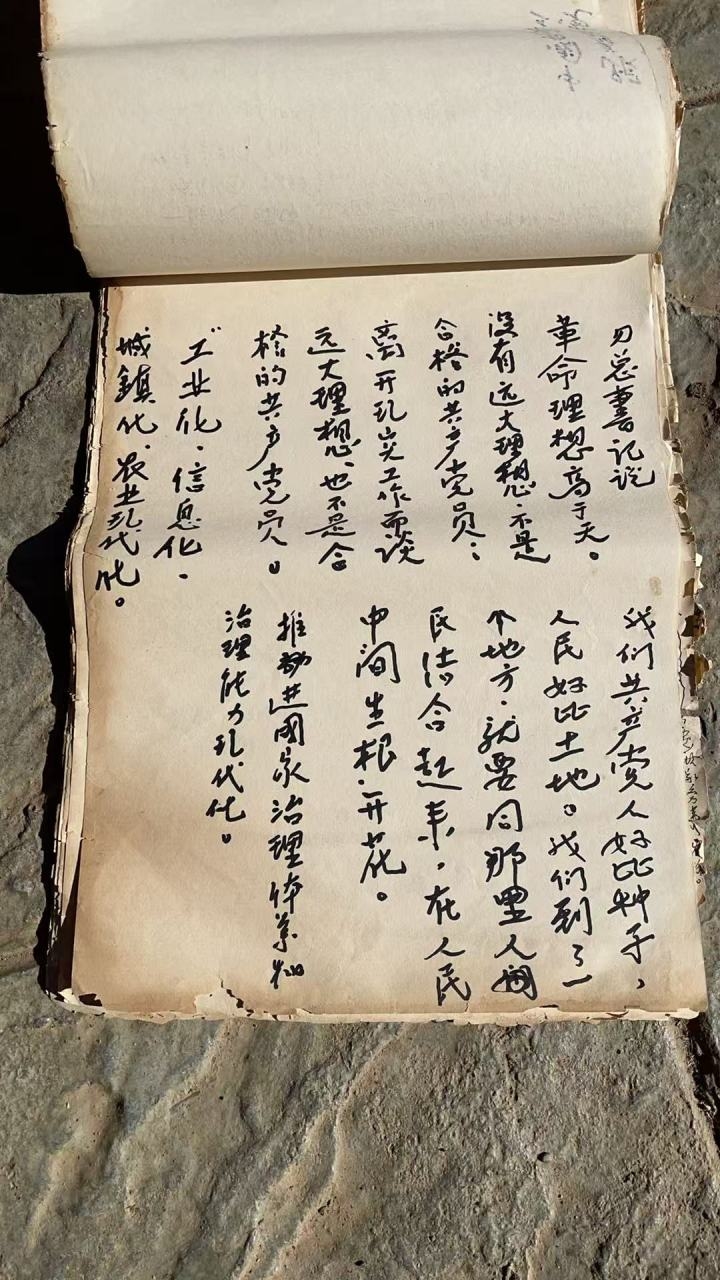 习总书记说
革命理想高于天。
没有远大理想、不是
合格的共产党员；
离开现实工作而谈
远大理想、也不是合
格的共产党员。
"工业化、信息化、
城鎮化、农业现代化。
我们共产党人好比种子，
人民好比土地。我们到了一
个地方、就要同那里人
民结合起来，在人民
中间生根、开花。
推动进国家治理体系和
治理能力现代化。